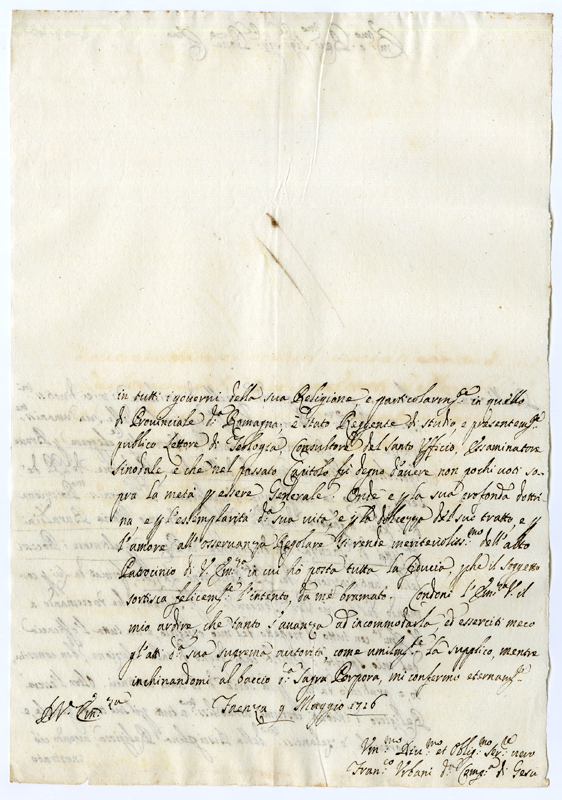 in tutt' i governi della sua Religione e particolarm.te in quello
di Provinciale di Romagna, è stato Reggente di studio, e presentem.te
publico Lettore di Teologia, Consultore del Santo Uffizio, Essaminatore
sinodale e che nel passato Capitolo fù degno d'avere non pochi voti so-
pra la metà p essere Generale. Onde e p la sua profonda dottri-
na, e p l'essemplarità d.a sua vita, e p la dolcezza del suo tratto, e p
l'amore all'osservanza Regolare si rende meritevoliss.mo dell'alto
Patrocinio di V. Em.za in cui hò posta tutta la fiducia, pche il sogetto
sortisca felicem.te l'intento, da me bramato. Condoni l'Em.za V. il
mio ardire, che tanto s'avanza ad incommodarla, ed eserciti meco
gl'atti d.a sua suprema autorità, come umilm.te La supplico, mentre
inchinandomi al baccio d.a Sagra Porpora, mi confermo eternam.te
D V.a Em.za
Faenza 9 Maggio 1716
Um.mo Div.mo et Oblig.mo Ser.re vero
Fran.co Urbani d.a Comp.a di Gesù